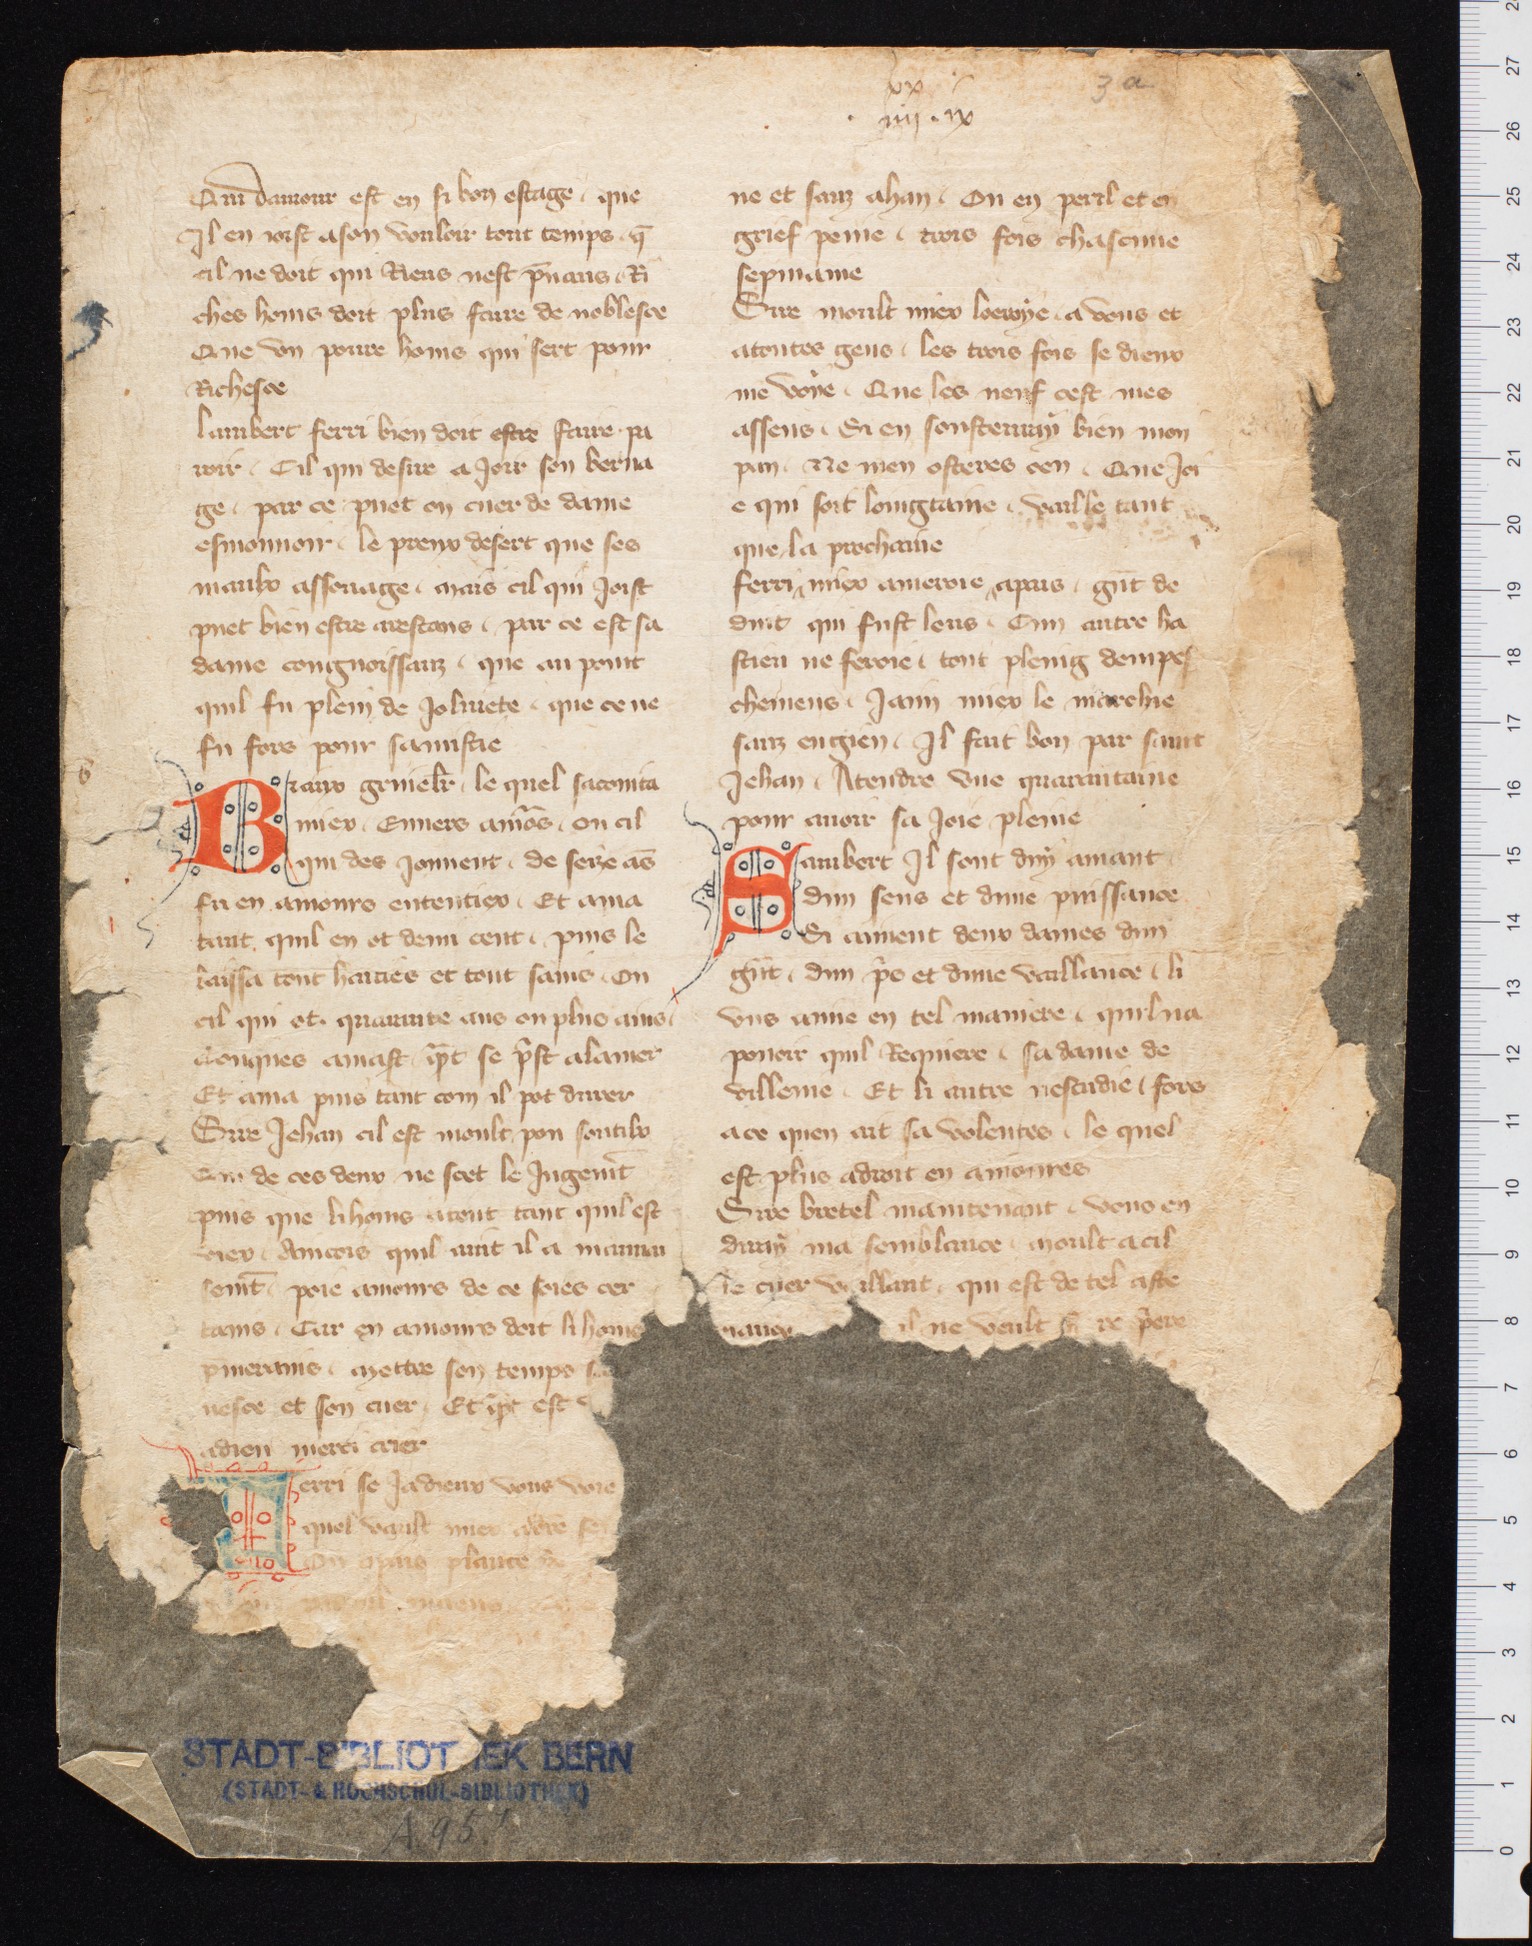 3 a
xx
. iiij . ix
Qui damour est en si bon estage . que
Il en ioist a son vouloir tout temps . q̄
cil ne doit qui Riens nest p̄naus . Ri
ches homs doit plus faire de noblesce
Que vn poure homs qui sert pour
Richesce
lambert ferri bien doit estre faire pa
roir . Cil qui desire a Joir son berna
ge . par ce puet on cuer de dame
esmouuoir . le preux desert que ses
maulx assouage . mais cil qui Joist
puet bien estre arestans . par ce est sa
dame congnoissanz . que au point
quil fu plein de Joliuete . que ce ne
fu fors pour samistie
Biaux grieuilr̄ . le quel sacointa
miex . Enuers amōs . ou cil
qui des Jouuent . de seize ās
fu en amours ententiex . Et ama
tant quil en ot demi cent . puis le
laissa tout haities et tout sains . Ou
cil qui ot quarante ans ou plus ains .
conques amast . ip̄t se p̄st a lamer
Et ama puis tant com il pot durer
Sire Jehan cil est moult pou soutilx
Qui de ces deux ne scet le Jugemt̄
puis que li homs a tout tant quil est
viex . Aincois quil ait il a mauuai
semt̄ . poie amours de ce soies cer
tains . Car en amours doit li homs
p̄merains . mettre son temps sa
nesce et son cuer . Et ip̄t est
a dieu merci crier
Ferri se Ja dieux vous voie
quel vault miex
Ou a pais plante de
ne et sanz ahan . Ou en peril et en
grief peine . trois fois chascune
sepmaine
Sire moult miex loeroye . a vous et
a toutes gens . les trois fois se dieux
me voye . Que les neuf cest mes
assens . Si en soustenray bien mon
pan . Ne men osteres oen . Que Joi
e qui soit longtaine . vaille tant
que la prochaine
ferri miex ameroie a pais . gn̄t de
duit qui fust lons . Cun autre ha
stieu ne feroie . tout pleing dempes
chemens . Jaim miex le marchie
sanz engien . Il fait bon par saint
Jehan . Atendre vne quarantaine
pour auoir sa Joie pleine
Lambert Il sont duy amant .
dun sens et dune puissance
Si aiment deux dames dun
gn̄t . dun p̄s et dune vaillance . li
vns aime en tel maniere . quil na
pouoir quil Requiere . sa dame de
villenie . Et li autre nestudie . fors
a ce quen ait sa volentes . le quel
est plus a droit en amoures
Sire bretel maintenant . vous en
diray ma semblance . moult a cil
le cuer vaillant . qui est de tel aste
nance il ne veult
STADT-BIBLIOTHEK BERN
(STADT- & HOCHSCHUL-BIBLIOTHEK)
A 95.4